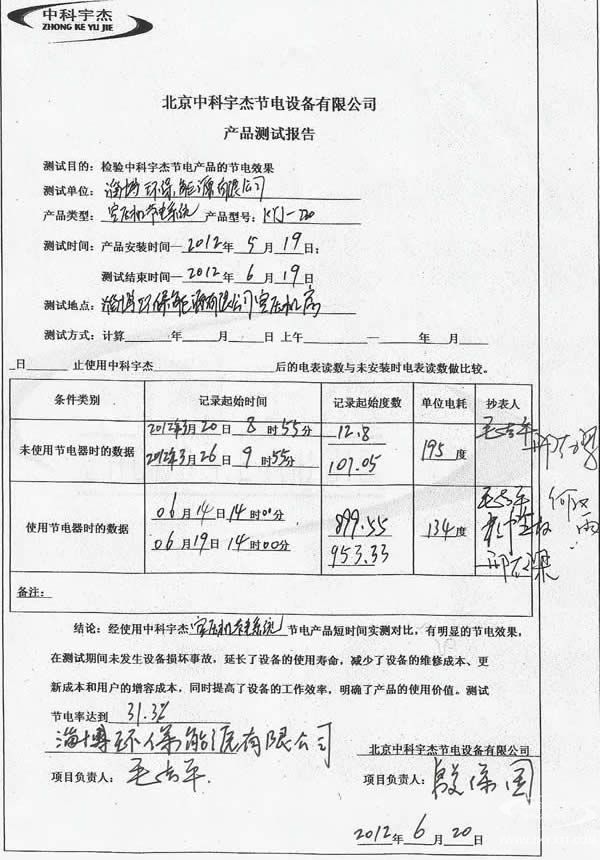 中科宇杰
ZHONG KE YU JIE
北京中科宇杰节电设备有限公司
产品测试报告
测试目的：检验中科宇杰节电产品的节电效果
测试单位：淄博环保能源有限公司
产品类型：空压机节电系统 产品型号：
测试时间：产品安装时间—2012年 5月 19日；
测试结束时间—2012年 6月 19日
测试地点：淄博环保能源有限公司空压机房
测试方式：计算 年 月 日 上午 — 年 月
日 止使用中科宇杰 后的电表读数与未安装时电表读数做比较。
条件类别 记录起始时间 记录起始度数 单位电耗 抄表人
未使用节电器时的数据 2012年3月20日 8时55分 12.8 195度
2012年3月26日 9时55分 107.05
使用节电器时的数据 06月14日14时00分 899.55 134度
06月19日14时00分 953.33
备注：
结论：经使用中科宇杰空压机节电系统节电产品短时间实测对比，有明显的节电效果，
在测试期间未发生设备损坏事故，延长了设备的使用寿命，减少了设备的维修成本、更
新成本和用户的增容成本，同时提高了设备的工作效率，明确了产品的使用价值。测试
节电率达到 31.3%
淄博环保能源有限公司 北京中科宇杰节电设备有限公司
项目负责人： 项目负责人：殷保国
2012年 6月 20日